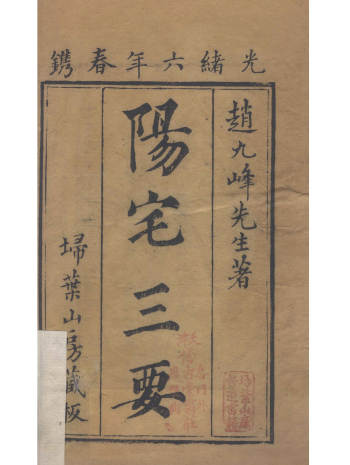 光緒六年春鐫
趙九峰先生著
陽宅三要
埽葉山房藏板